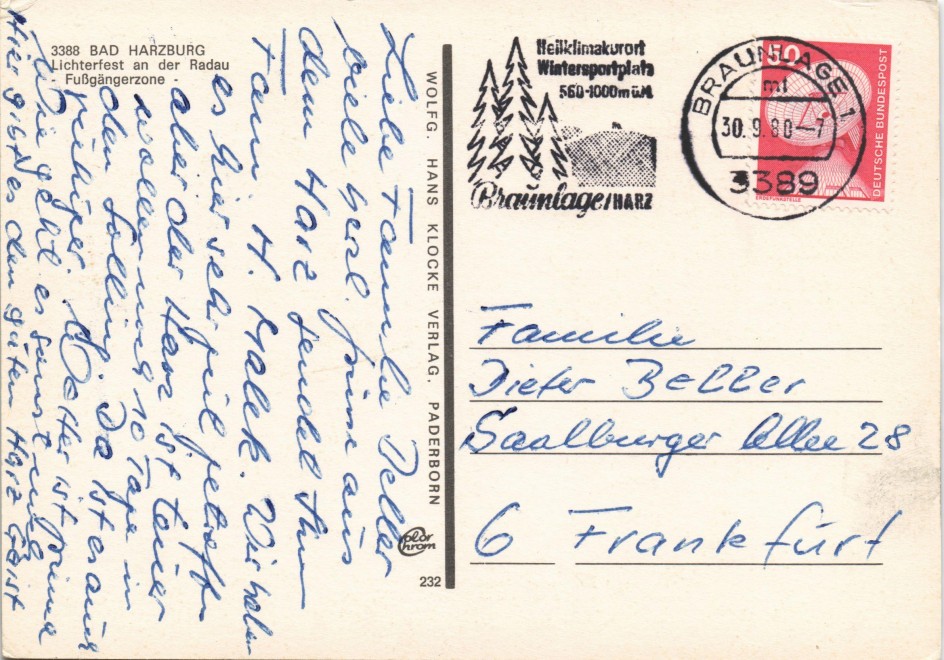 3388 BAD HARZBURG
Lichterfest an der Radau
Fußgängerzone -
Liebe Familie Deller
viele herzl. Grüße aus
dem Harz sendet Ihnen
Fam. H. Kallek. Wir haben
es hier sehr gut getroffen
aber der Harz ist teuer
wollen noch 10 Tage in
den Solling. Da ist es auch
ruhiger. Wetter ist prima
Wie geht es sonst
Hier gibt es den guten Harz Geist
WOLFG. HANS KLOCKE VERLAG, PADERBORN
Color Chrom
232
Heilklimakurort
Wintersportplatz
560-1000m ü.M.
Braunlage/HARZ
BRAUNLAGE 1
mf
30.9.80-7
3389
50
DEUTSCHE BUNDESPOST
ERDEFUNKSTELLE
Familie
Dieter Beller
Saalburger Allee 28
6 Frankfurt